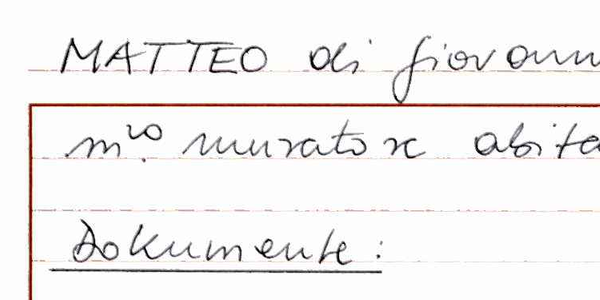 MATTEO di giovann
m.ro muratore abita
Dokumente: